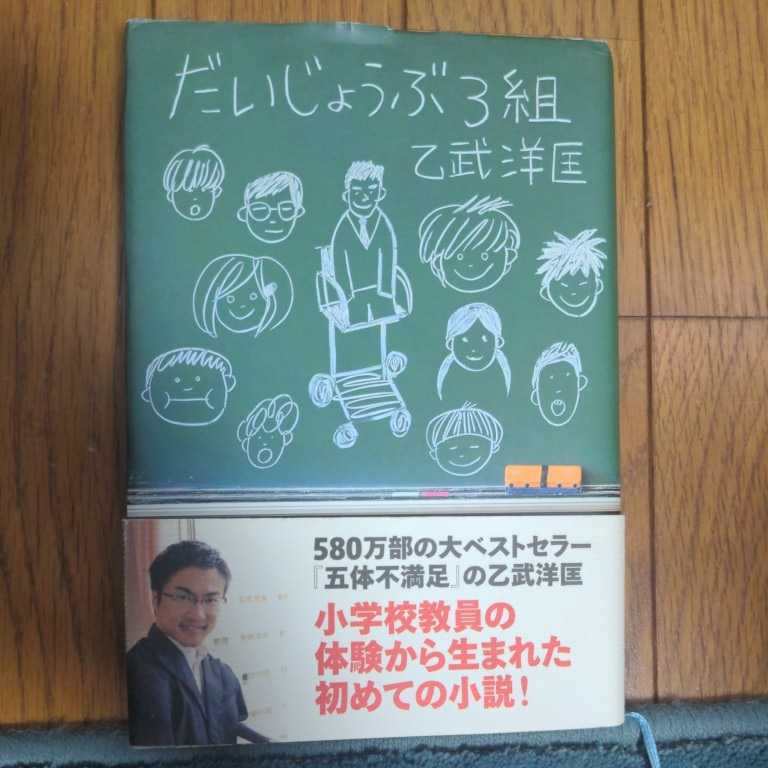 だいじょうぶ3組
乙武洋匡
580万部の大ベストセラー
『五体不満足』の乙武洋匡
小学校教員の
体験から生まれた
初めての小説!